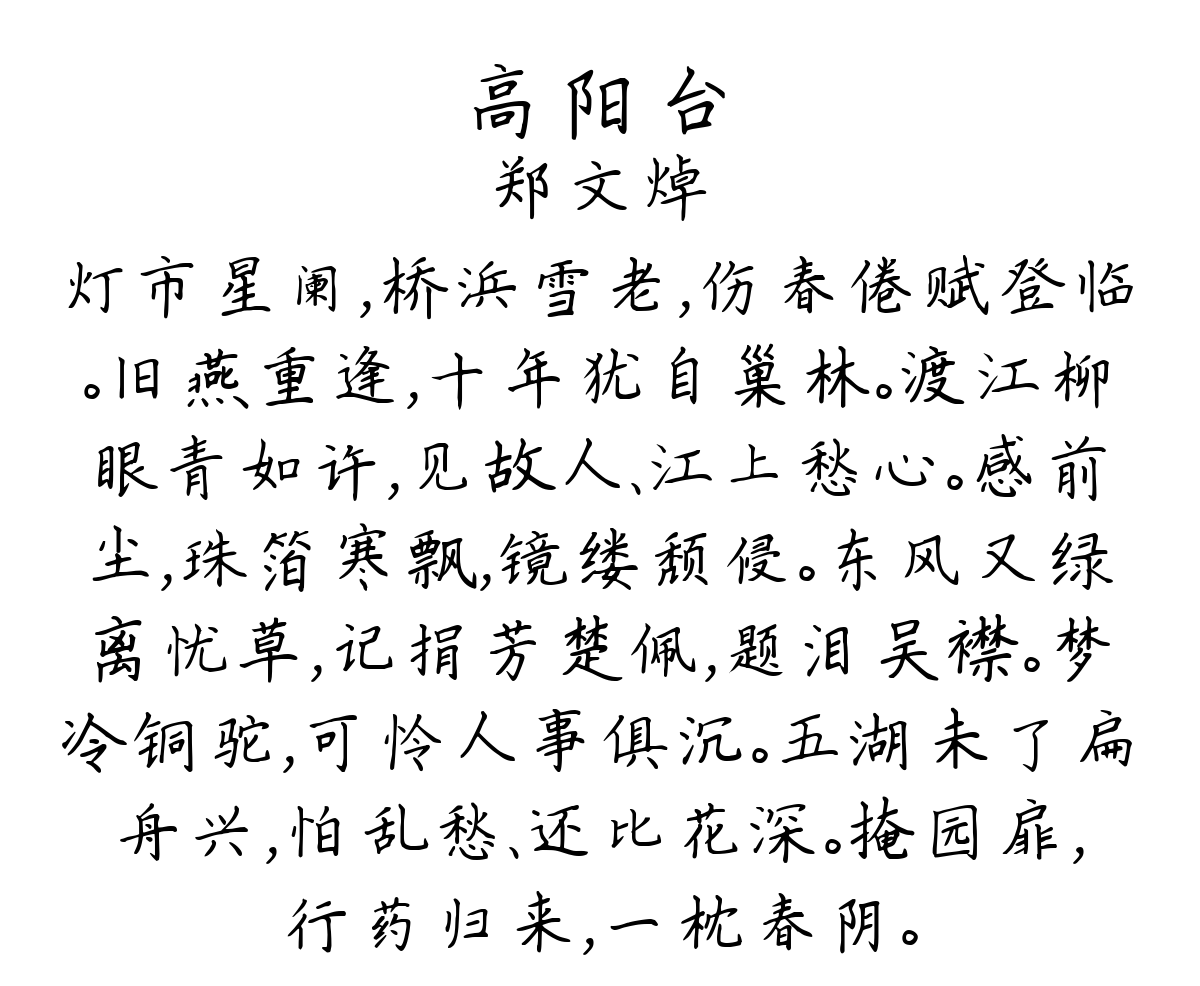 高阳台
郑文焯
灯市星阑,桥浜雪老,伤春倦赋登临
。旧燕重逢,十年犹自巢林。渡江柳
眼青如许,见故人、江上愁心。感前
尘,珠箔寒飘,镜缕颓侵。东风又绿
离忧草,记捐芳楚佩,题泪吴襟。梦
冷铜驼,可怜人事俱沉。五湖未了扁
舟兴,怕乱愁、还比花深。掩园扉,
行药归来,一枕春阴。